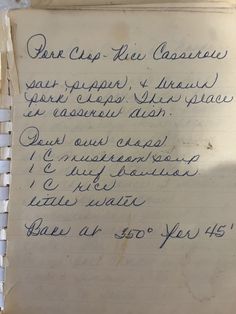 Pork Chop - Rice Casserole
salt, pepper, & brown
pork chops. Then place
in casserole dish.
Pour over chops
1 C mushroom soup
1 C beef bouillon
1 C rice
little water
Bake at 350° for 45'